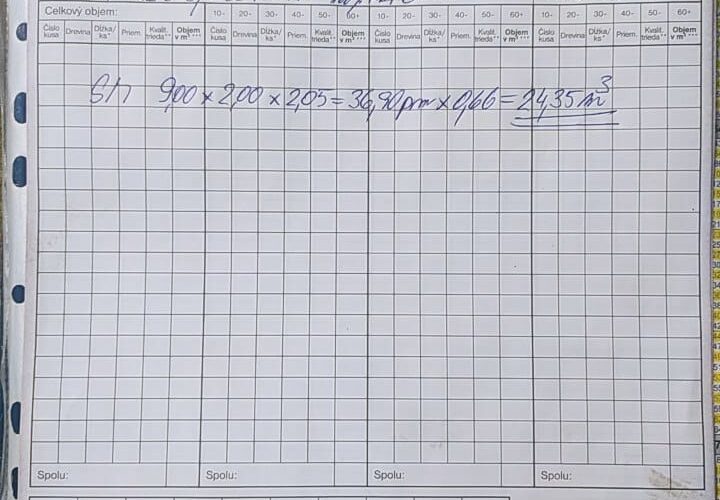 Celkový objem: 10- 20- 30- 40- 50- 60+ 10- 20- 30- 40- 50- 60+ 10- 20- 30- 40- 50- 60+
Číslo kusa Drevina Dĺžka/ks* Priem. Kvalit. trieda** Objem v m³*** Číslo kusa Drevina Dĺžka/ks* Priem. Kvalit. trieda** Objem v m³*** Číslo kusa Drevina Dĺžka/ks* Priem. Kvalit. trieda** Objem v m³*** Číslo kusa Drevina Dĺžka/ks* Priem. Kvalit. trieda** Objem v m³***
9,00 × 2,00 × 2,05 = 36,90 pm × 0,66 = 24,35 m³
Spolu: Spolu: Spolu: Spolu: